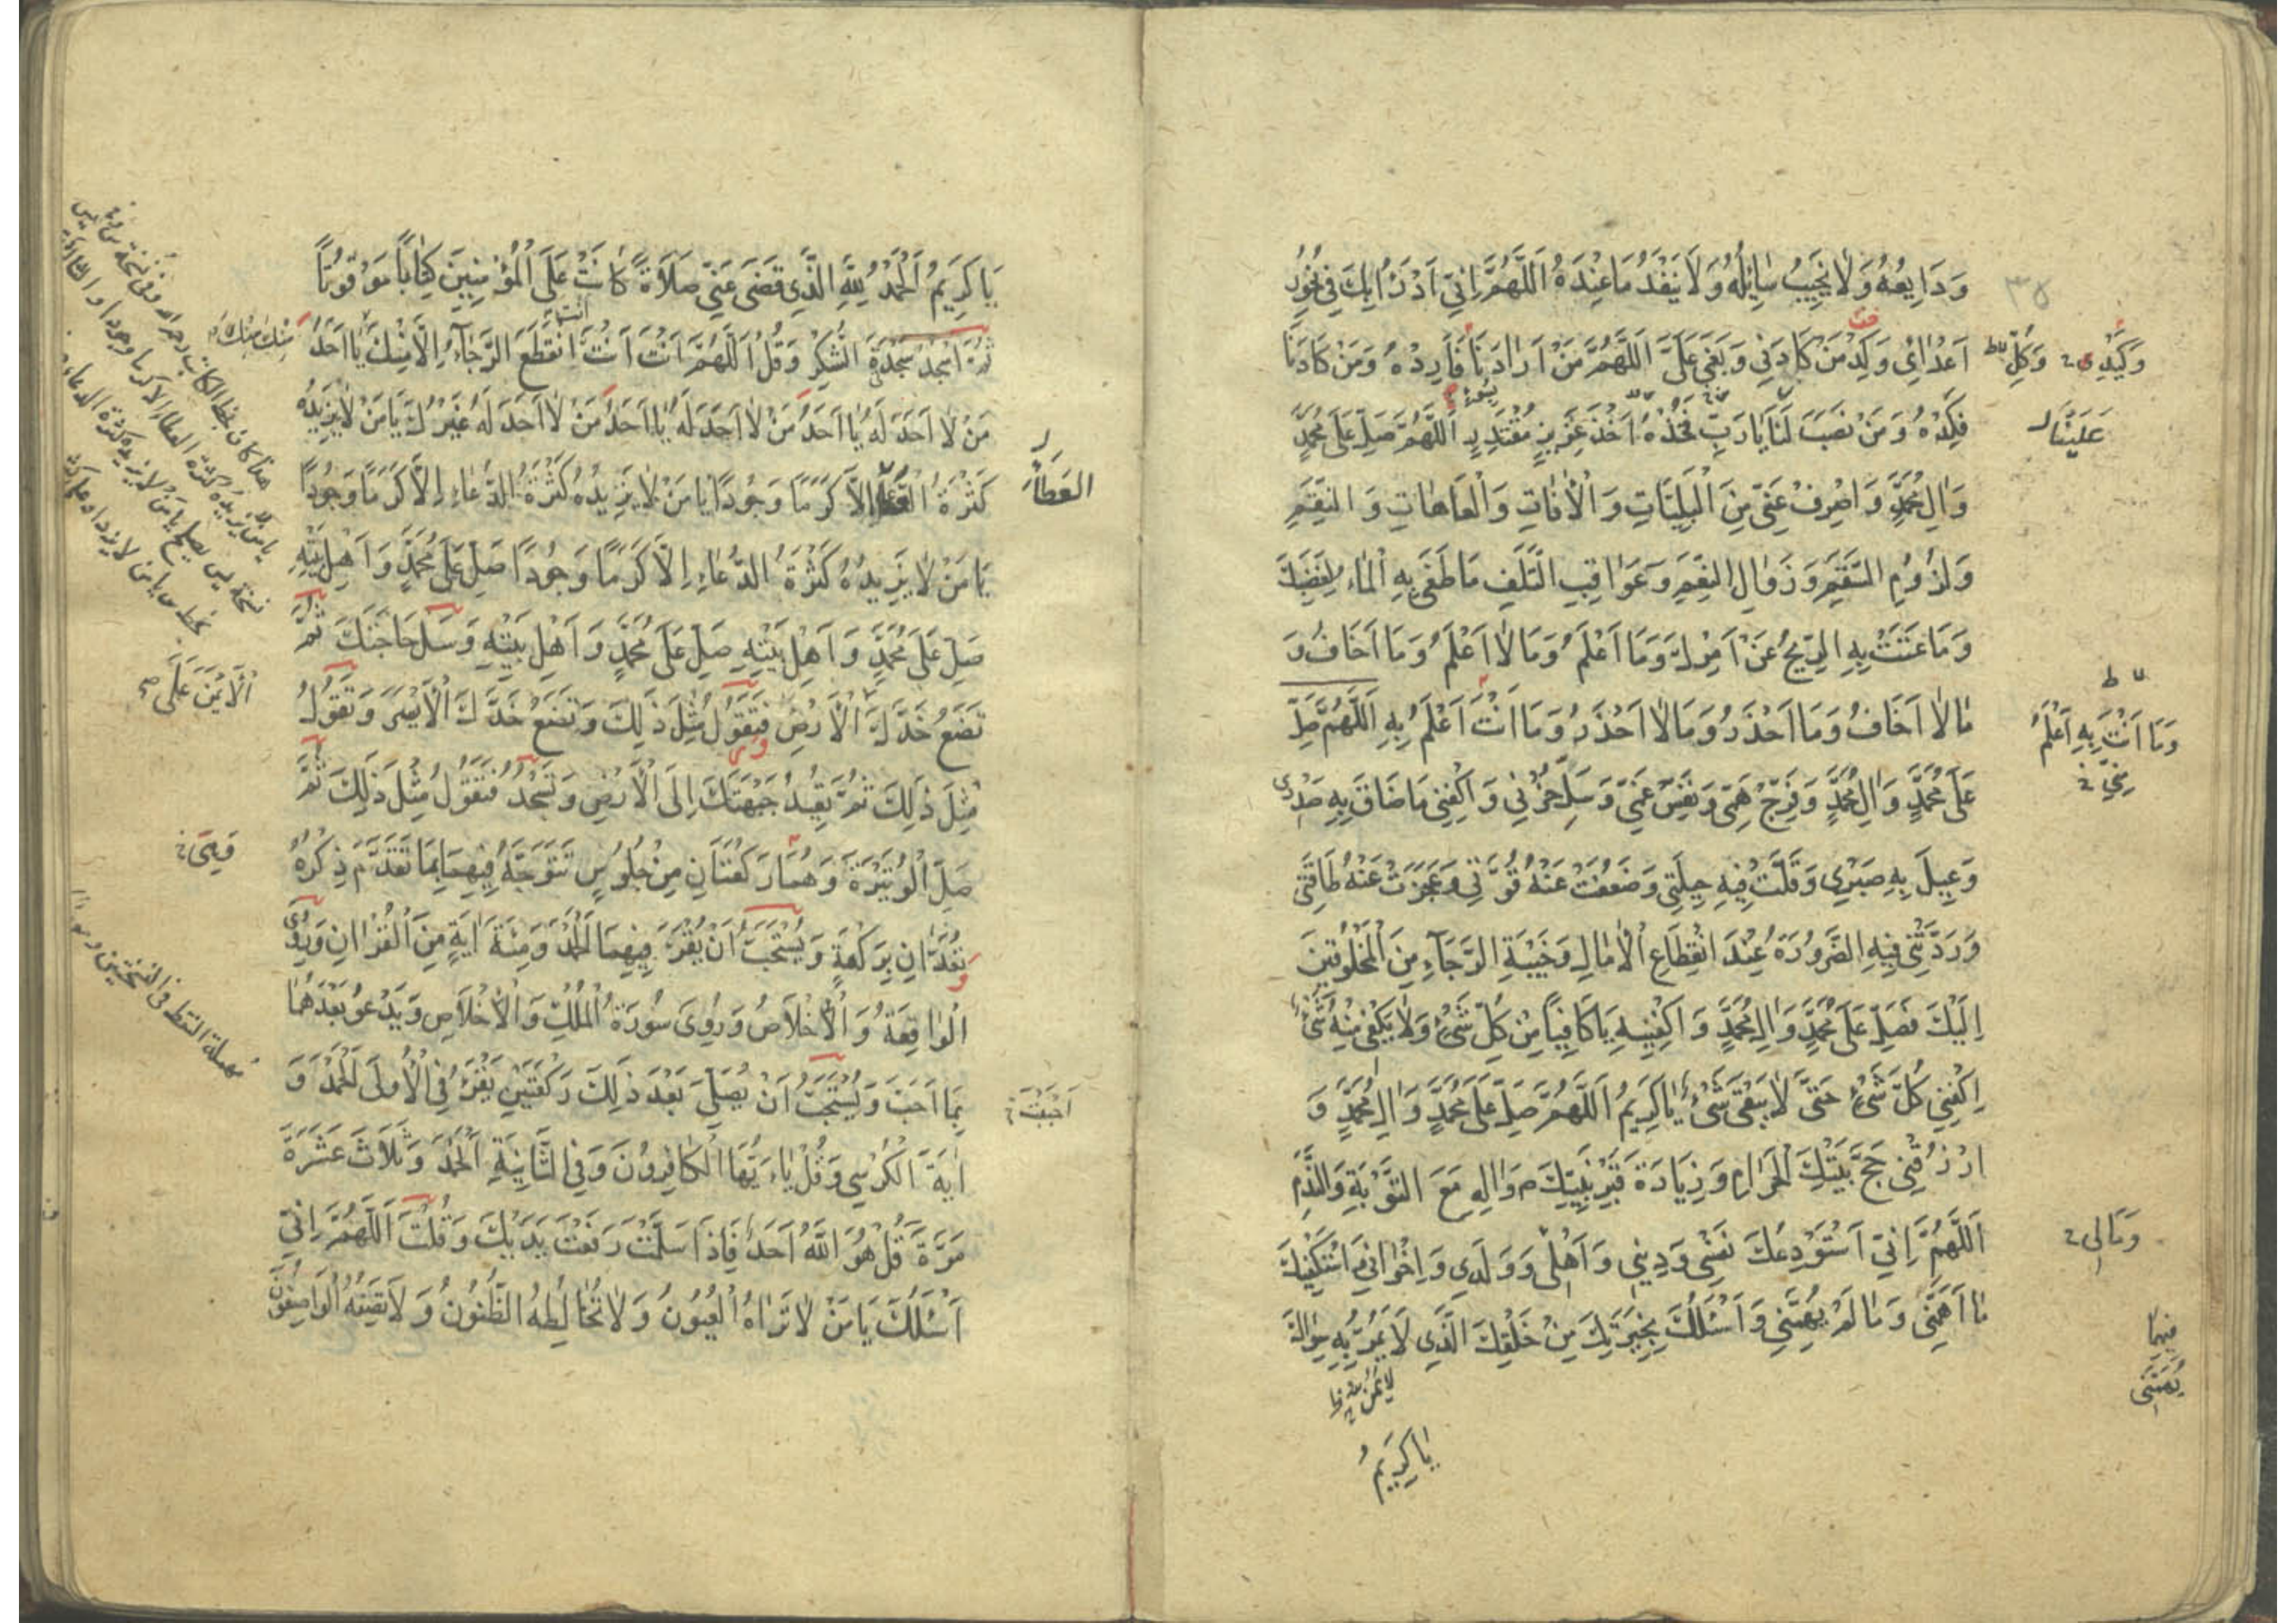 وَدَايِعُهُ وَلَا يَخِيبُ سَائِلُهُ وَلَا يَنْفَدُ مَا عِنْدَهُ اَللَّهُمَّ اِنِّي اَدْرَءُ بِكَ فِي نُحُورِ
اَعْدَائِي وَكِدْ مَنْ كَادَنِي وَبَغَى عَلَيَّ اَللَّهُمَّ مَنْ اَرَادَنَا فَاَرِدْهُ وَمَنْ كَادَنَا
فَكِدْهُ وَمَنْ نَصَبَ لَنَا يَا رَبِّ فَخُذْهُ اَخْذَ عَزِيزٍ مُقْتَدِرٍ اَللَّهُمَّ صَلِّ عَلَى مُحَمَّدٍ
وَالِ مُحَمَّدٍ وَاصْرِفْ عَنِّي مِنَ الْبَلِيَّاتِ وَالْافَاتِ وَالْعَاهَاتِ وَالنِّقَمِ
وَلُزُومِ السَّقَمِ وَزَوَالِ النِّعَمِ وَعَوَاقِبِ التَّلَفِ مَا طَغَى بِهِ الْمَاءُ لِغَضَبِكَ
وَمَا عَتَتْ بِهِ الرِّيحُ عَنْ اَمْرِكَ وَمَا اَعْلَمُ وَمَا لَا اَعْلَمُ وَمَا اَخَافُ وَ
مَا لَا اَخَافُ وَمَا اَحْذَرُ وَمَا لَا اَحْذَرُ وَمَا اَنْتَ اَعْلَمُ بِهِ اَللَّهُمَّ صَلِّ
عَلَى مُحَمَّدٍ وَالِ مُحَمَّدٍ وَفَرِّجْ هَمِّي وَنَفِّسْ غَمِّي وَسَلِّ حُزْنِي وَاكْفِنِي مَا ضَاقَ بِهِ صَدْرِي
وَعِيلَ بِهِ صَبْرِي وَقَلَّتْ فِيهِ حِيلَتِي وَضَعُفَتْ عَنْهُ قُوَّتِي وَعَجَزَتْ عَنْهُ طَاقَتِي
وَرَدَّتْنِي فِيهِ الضَّرُورَةُ عِنْدَ انْقِطَاعِ الْامَالِ وَخَيْبَةِ الرَّجَاءِ مِنَ الْمَخْلُوقِينَ
اِلَيْكَ فَصَلِّ عَلَى مُحَمَّدٍ وَالِ مُحَمَّدٍ وَاكْفِنِيهِ يَا كَافِيًا مِنْ كُلِّ شَيْءٍ وَلَا يَكْفِي مِنْهُ شَيْءٌ
اِكْفِنِي كُلَّ شَيْءٍ حَتَّى لَا يَبْقَى شَيْءٌ يَا كَرِيمُ اَللَّهُمَّ صَلِّ عَلَى مُحَمَّدٍ وَالِ مُحَمَّدٍ وَ
ارْزُقْنِي حَجَّ بَيْتِكَ الْحَرَامِ وَزِيَارَةَ قَبْرِ نَبِيِّكَ ص وَالِهِ مَعَ التَّوْبَةِ وَالنَّدَمِ
اَللَّهُمَّ اِنِّي اَسْتَوْدِعُكَ نَفْسِي وَدِينِي وَاَهْلِي وَوَلَدِي وَاِخْوَانِي وَاَسْتَكْفِيكَ
مَا اَهَمَّنِي وَمَا لَمْ يُهِمَّنِي وَاَسْئَلُكَ بِخِيَرَتِكَ مِنْ خَلْقِكَ الَّذِي لَا يَمُنُّ بِهِ سِوَاكَ
يَا كَرِيمُ
وَكَيْدِ
وَكُلِّ
عَلَيْنَا
وَمَا اَنْتَ بِهِ اَعْلَمُ
مِنِّي
وَمَالِي
فِيمَا
يُهِمُّنِي
يَا كَرِيمُ اَلْحَمْدُ لِلَّهِ الَّذِي قَضَى عَنِّي صَلَاةً كَانَتْ عَلَى الْمُؤْمِنِينَ كِتَابًا مَوْقُوتًا
ثُمَّ اسْجُدْ سَجْدَةَ الشُّكْرِ وَقُلْ اَللَّهُمَّ اَنْتَ اَنْتَ انْقَطَعَ الرَّجَاءُ اِلَّا مِنْكَ يَا اَحَدَ
مَنْ لَا اَحَدَ لَهُ يَا اَحَدَ مَنْ لَا اَحَدَ لَهُ يَا اَحَدَ مَنْ لَا اَحَدَ لَهُ غَيْرُكَ يَا مَنْ لَا يَزِيدُهُ
كَثْرَةُ الدُّعَاءِ اِلَّا كَرَمًا وَجُودًا يَا مَنْ لَا يَزِيدُهُ كَثْرَةُ الدُّعَاءِ اِلَّا كَرَمًا وَجُودًا
يَا مَنْ لَا يَزِيدُهُ كَثْرَةُ الدُّعَاءِ اِلَّا كَرَمًا وَجُودًا صَلِّ عَلَى مُحَمَّدٍ وَاَهْلِ بَيْتِهِ
صَلِّ عَلَى مُحَمَّدٍ وَاَهْلِ بَيْتِهِ صَلِّ عَلَى مُحَمَّدٍ وَاَهْلِ بَيْتِهِ وَسَلْ حَاجَتَكَ ثُمَّ
تَضَعُ خَدَّكَ الْاَرْضَ فَتَقُولُ مِثْلَ ذَلِكَ وَتَضَعُ خَدَّكَ الْاَيْسَرَ وَتَقُولُ
مِثْلَ ذَلِكَ ثُمَّ يُعِيدُ جَبْهَتَكَ اِلَى الْاَرْضِ وَتَسْجُدُ فَتَقُولُ مِثْلَ ذَلِكَ ثُمَّ
صَلِّ الْوُتَيْرَةَ وَهُمَا رَكْعَتَانِ مِنْ جُلُوسٍ تَتَوَجَّهُ فِيهِمَا بِمَا تَقَدَّمَ ذِكْرُهُ
تُعَدَّانِ بِرَكْعَةٍ وَيُسْتَحَبُّ اَنْ يُقْرَءَ فِيهِمَا الْحَمْدُ وَمِئَةَ ايَةٍ مِنَ الْقُرْانِ وَرُوِيَ
الْوَاقِعَةُ وَالْاِخْلَاصُ وَرُوِيَ سُورَةُ الْمُلْكِ وَالْاِخْلَاصِ وَيَدْعُو بَعْدَهُمَا
بِمَا اَحَبَّ وَيُسْتَحَبُّ اَنْ يُصَلِّيَ بَعْدَ ذَلِكَ رَكْعَتَيْنِ يَقْرَءُ فِي الْاُولَى الْحَمْدَ وَ
ايَةَ الْكُرْسِي وَقُلْ يَاءَيُّهَا الْكَافِرُونَ وَفِي الثَّانِيَةِ الْحَمْدَ وَثَلَاثَ عَشَرَةَ
مَرَّةً قُلْ هُوَ اللَّهُ اَحَدٌ فَاِذَا سَلَّمْتَ رَفَعْتَ يَدَيْكَ وَقُلْتَ اَللَّهُمَّ اِنِّي
اَسْئَلُكَ يَا مَنْ لَا تَرَاهُ الْعُيُونُ وَلَا تُخَالِطُهُ الظُّنُونُ وَلَا يَصِفُهُ الْوَاصِفُونَ
العَطَاءِ
اَحْبَبْتَ
اَلْاَيْمَنَ عَلَى
فَهِيَ
مهملة النقط فى النسختين